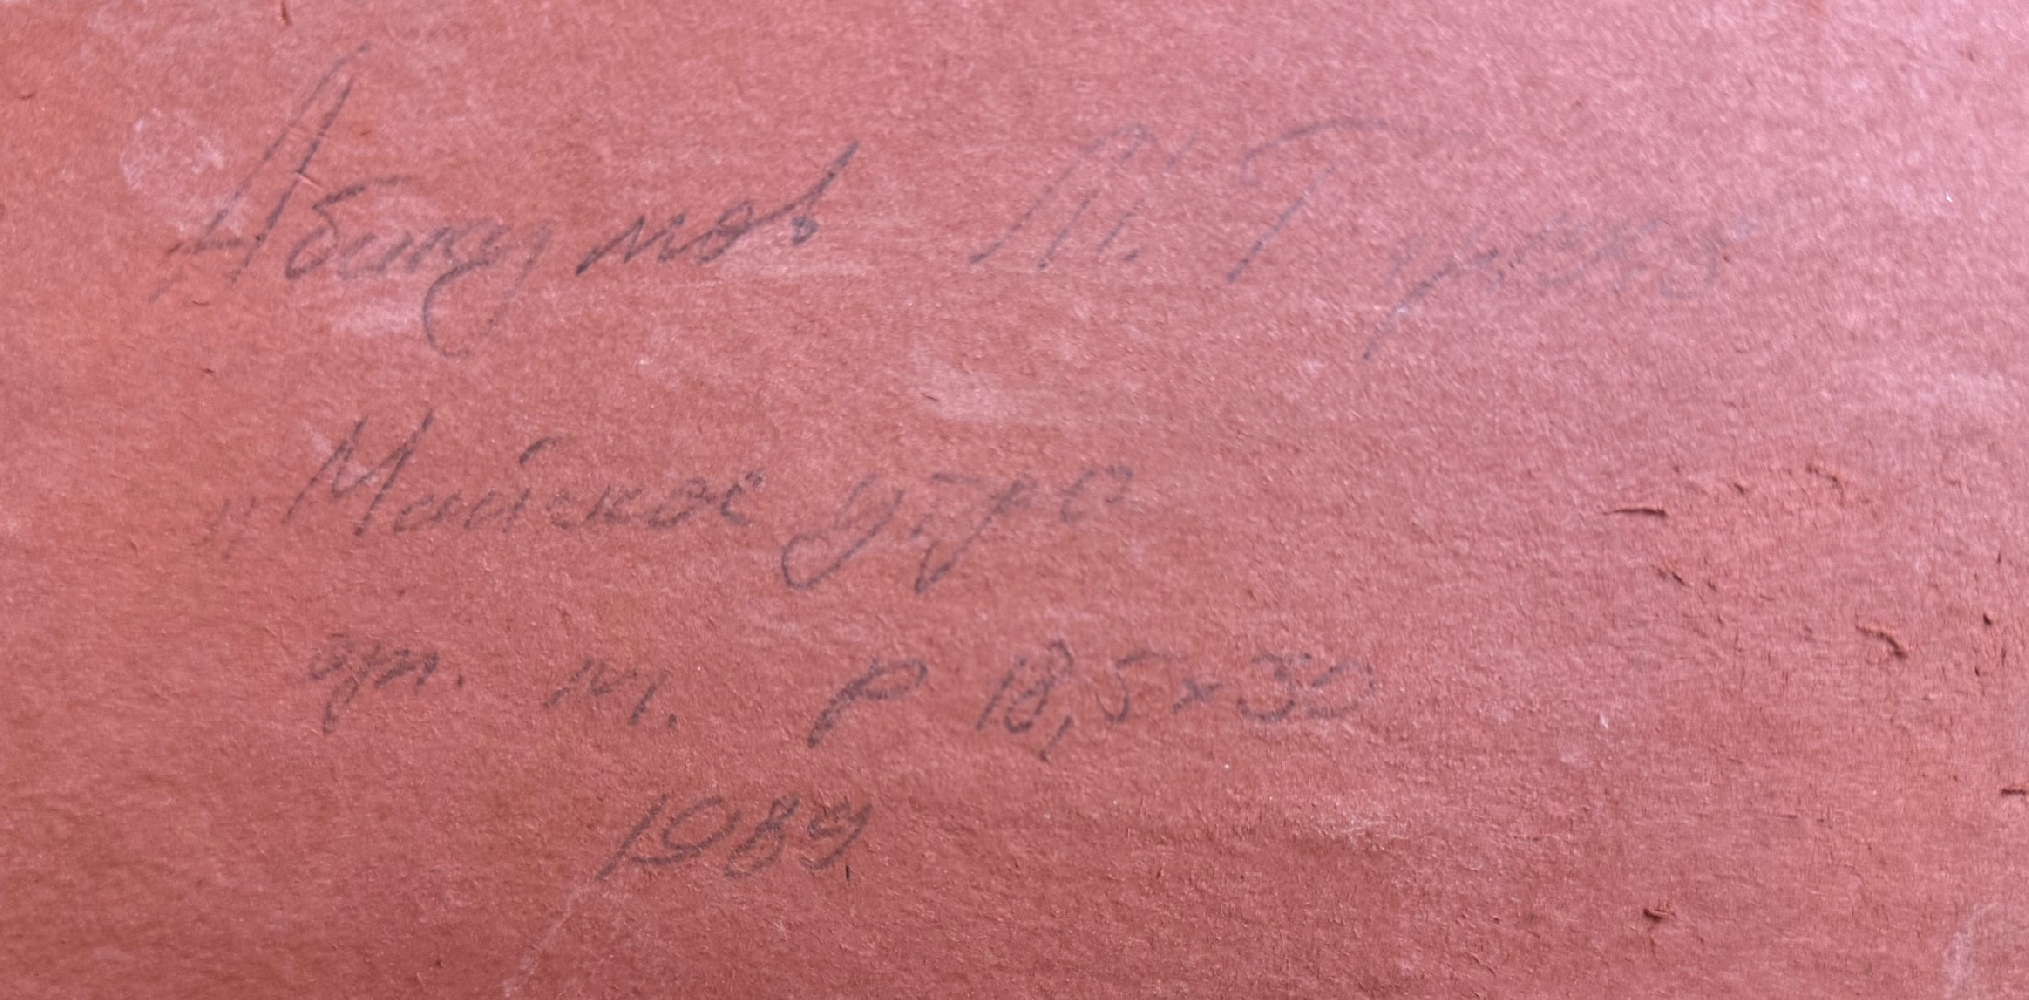 Абакумов М. Таруса
„Майское утро
орг. м. р 18,5×30
1989